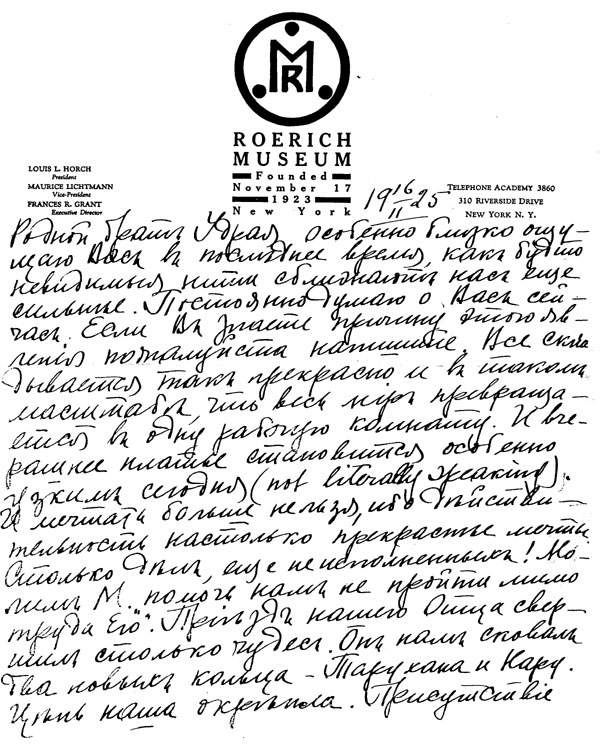 MR
ROERICH
MUSEUM
Founded
November 17
1923
New York
LOUIS L. HORCH
President
MAURICE LICHTMANN
Vice-President
FRANCES R. GRANT
Executive Director
TELEPHONE ACADEMY 3860
310 RIVERSIDE DRIVE
NEW YORK N. Y.
19 16/II 25
Родной братъ Удрая, особенно близко ощу-
щаю Васъ въ последнее время, какъ будто
невидимыя нити сближаютъ насъ еще
сильнѣе. Постоянно думаю о Васъ сей-
часъ. Если Вы знаете причину этого яв-
ленія пожалуйста напишите. Все скла
дывается такъ прекрасно и въ такомъ
масштабѣ что весь міръ превраща-
ется въ одну рабочую комнату. И вче-
рашнее платье становится особенно
узкимъ сегодня (not literally speaking).
И мечтать больше нельзя, ибо дѣйстви-
тельность настолько прекраснѣе мечты.
Столько дѣлъ, еще неисполненныхъ! Мо-
лимъ М. помочь намъ не пройти мимо
"труда Его". Пріѣздъ нашего Отца свер-
шилъ столько чудесъ. Онъ намъ сковалъ
два новыхъ кольца - Тарухана и Нару.
Цѣпь наша окрѣпла. Присутствіе